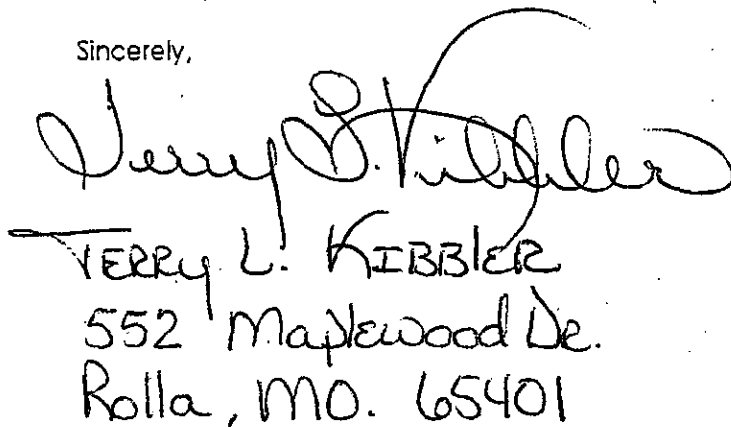 Sincerely,
Terry L. Kibbler
TERRY L. KIBBLER
552 Maplewood Dr.
Rolla, MO. 65401